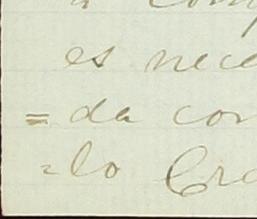 a com
es nece
=da con
=lo Cre